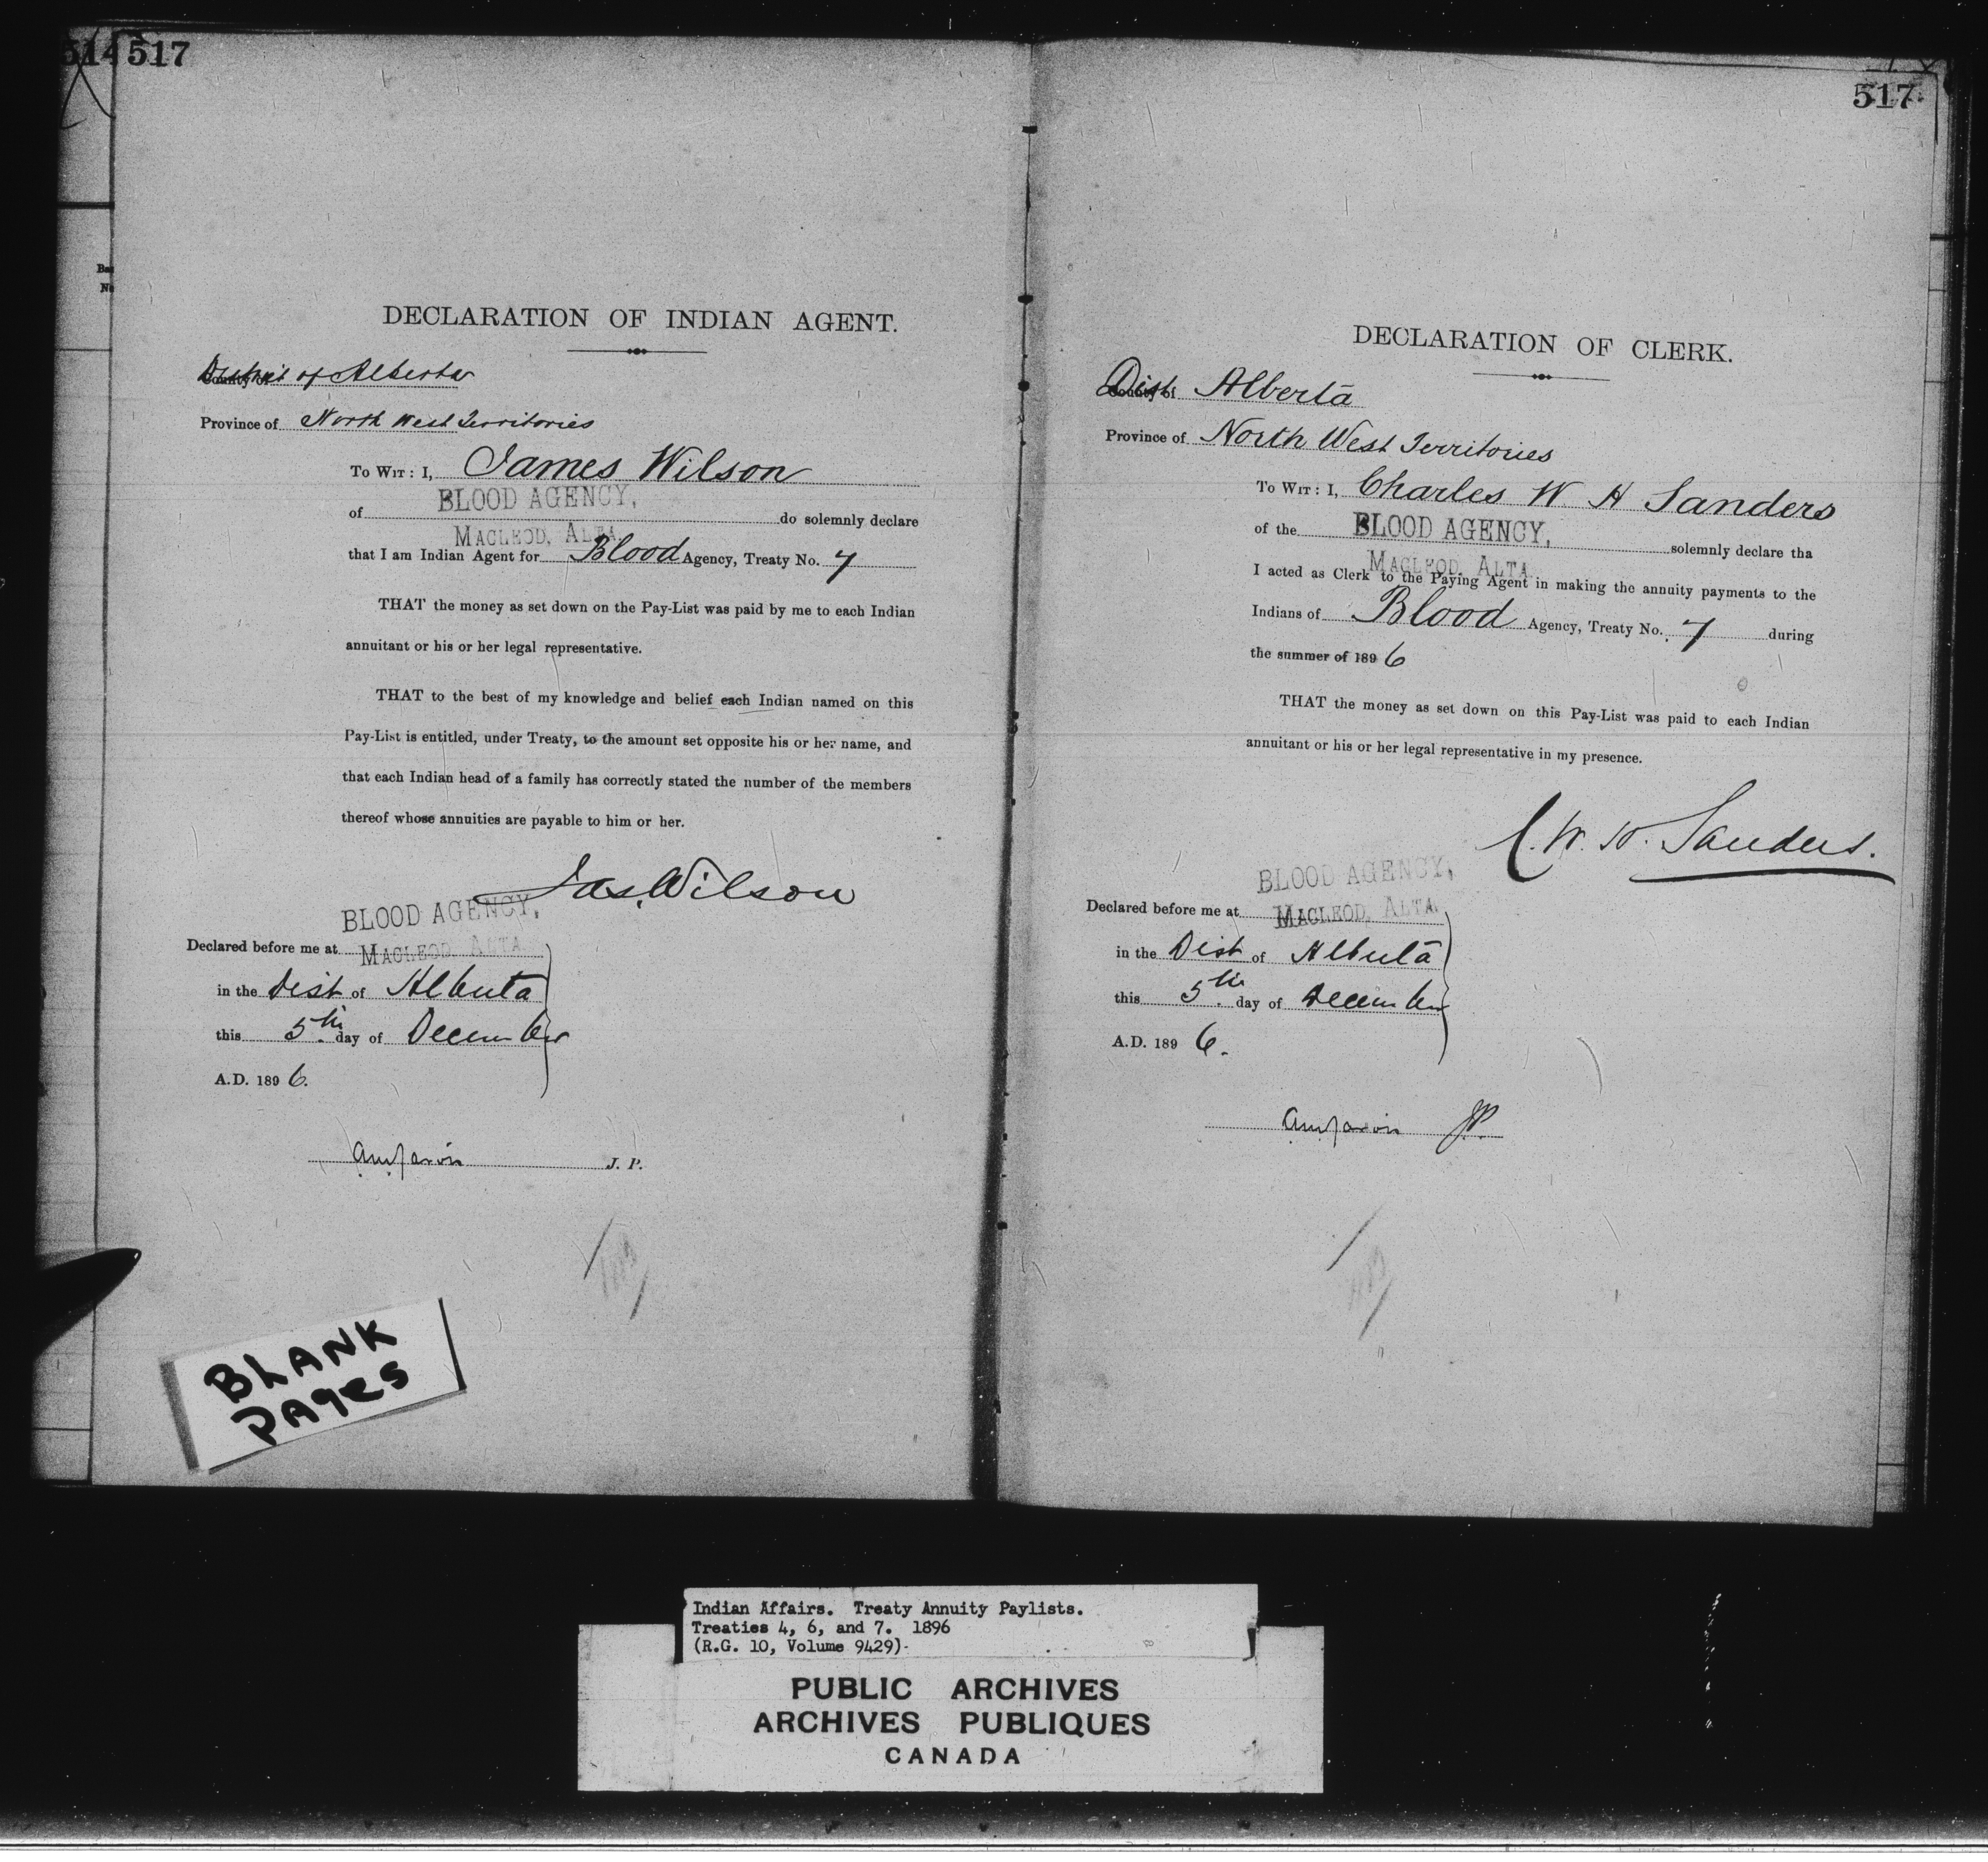 514 517
DECLARATION OF INDIAN AGENT.
District of Alberta
Province of North West Territories
To Wit: I, James Wilson
BLOOD AGENCY,
of do solemnly declare
MACLEOD, ALTA.
that I am Indian Agent for Blood Agency, Treaty No. 7
THAT the money as set down on the Pay-List was paid by me to each Indian
annuitant or his or her legal representative.
THAT to the best of my knowledge and belief each Indian named on this
Pay-List is entitled, under Treaty, to the amount set opposite his or her name, and
that each Indian head of a family has correctly stated the number of the members
thereof whose annuities are payable to him or her.
Jas. Wilson
BLOOD AGENCY,
Declared before me at MACLEOD, ALTA
in the Dist of Alberta
this 5th day of December
A.D. 1896.
J. P.
BLANK
PAGES
517
DECLARATION OF CLERK.
Dist of Alberta
Province of North West Territories
To Wit: I, Charles W H Sanders
of the BLOOD AGENCY, solemnly declare tha
MACLEOD, ALTA.
I acted as Clerk to the Paying Agent in making the annuity payments to the
Indians of Blood Agency, Treaty No. 7 during
the summer of 1896
THAT the money as set down on this Pay-List was paid to each Indian
annuitant or his or her legal representative in my presence.
C. W. H. Sanders.
BLOOD AGENCY,
Declared before me at MACLEOD, ALTA.
in the Dist of Alberta
this 5th day of December
A.D. 1896.
JP.
Indian Affairs. Treaty Annuity Paylists.
Treaties 4, 6, and 7. 1896
(R.G. 10, Volume 9429)
PUBLIC ARCHIVES
ARCHIVES PUBLIQUES
CANADA